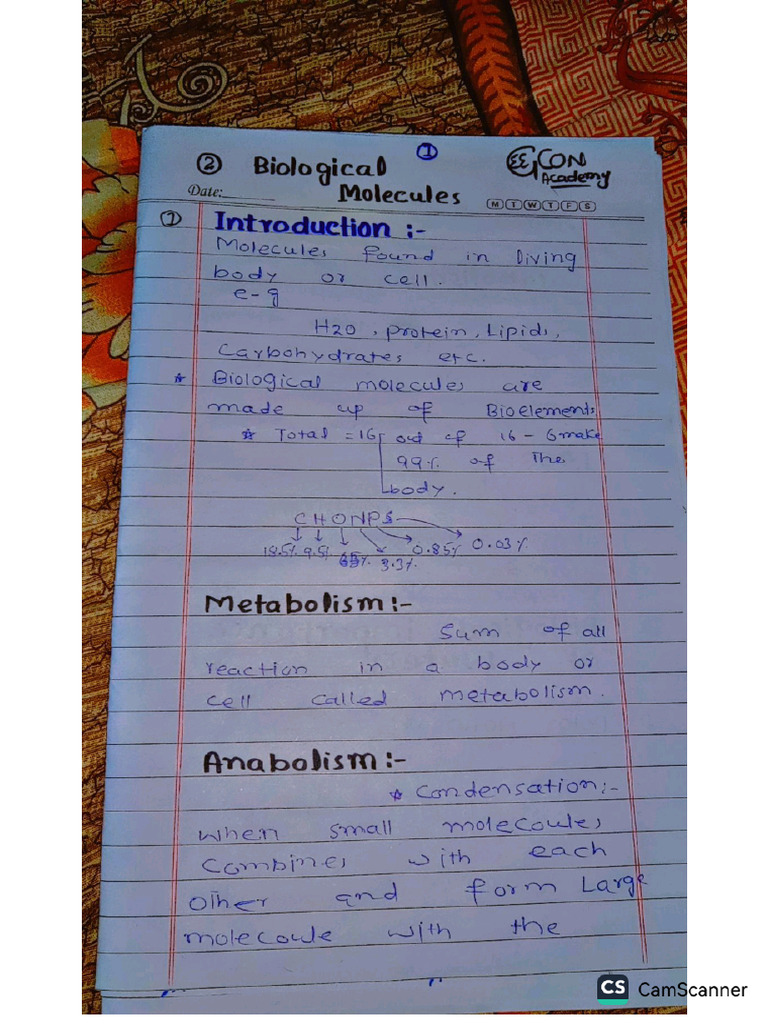 ①
② Biological
EGCON
Academy
Date:
Molecules
M T W T F S
① Introduction :-
Molecules found in living
body or cell.
e-g
H2O, protein, Lipids,
Carbohydrates etc.
* Biological molecules are
made up of Bioelements
* Total = 16 out of 16 - 6 make
99% of The
body.
CHONPS
18.5% 9.5% 65% 3.3% 0.85% 0.03%
Metabolism:-
Sum of all
reaction in a body or
cell called metabolism.
Anabolism:-
* Condensation:-
when small molecoules
combines with each
other and form Large
molecoule with the
CS CamScanner